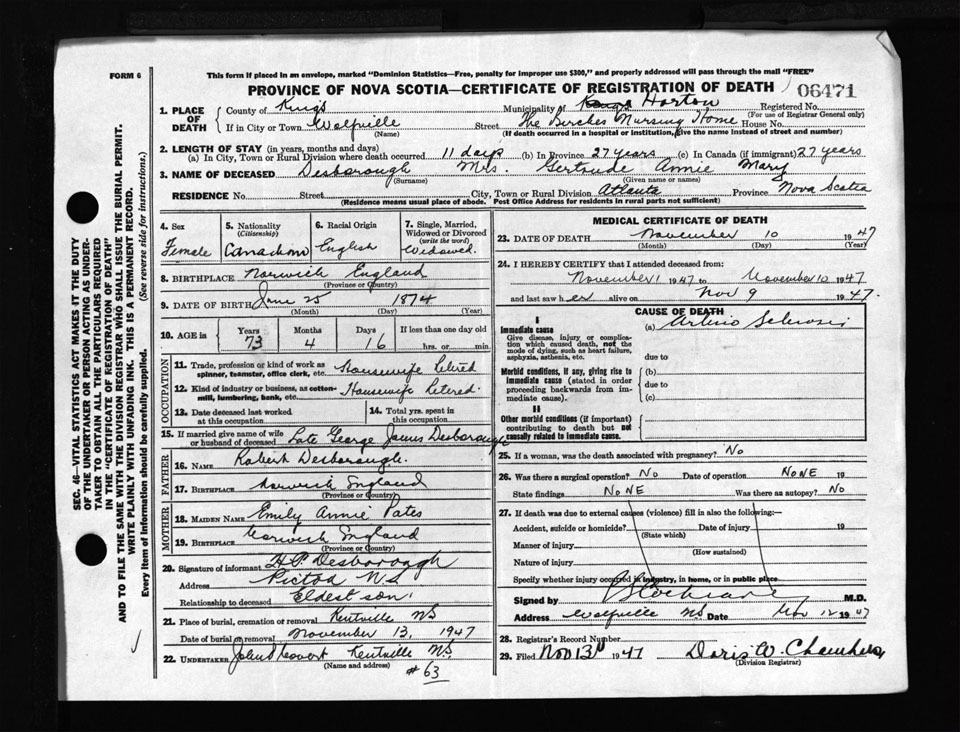 FORM 6
This form if placed in an envelope, marked "Dominion Statistics—Free, penalty for improper use $300," and properly addressed will pass through the mail "FREE"
PROVINCE OF NOVA SCOTIA—CERTIFICATE OF REGISTRATION OF DEATH
06471
SEC. 46—VITAL STATISTICS ACT MAKES IT THE DUTY
OF THE UNDERTAKER OR PERSON ACTING AS UNDER-
TAKER TO OBTAIN ALL THE PARTICULARS REQUIRED
IN THE "CERTIFICATE OF REGISTRATION OF DEATH"
AND TO FILE THE SAME WITH THE DIVISION REGISTRAR WHO SHALL ISSUE THE BURIAL PERMIT.
WRITE PLAINLY WITH UNFADING INK. THIS IS A PERMANENT RECORD.
Every item of information should be carefully supplied. (See reverse side for instructions.)
1. PLACE OF DEATH
County of Kings Municipality of Horton Registered No.
(For use of Registrar General only)
If in City or Town Wolfville Street The Birches Nursing Home House No.
(Name) (If death occurred in a hospital or institution, give the name instead of street and number)
2. LENGTH OF STAY (in years, months and days)
(a) In City, Town or Rural Division where death occurred 11 days (b) In Province 27 years (c) In Canada (if immigrant) 27 years
3. NAME OF DECEASED Desborough Mrs. Gertrude Annie Mary
(Surname) (Given name or names)
RESIDENCE No. Street City, Town or Rural Division Atlanta Province Nova Scotia
(Residence means usual place of abode. Post Office Address for residents in rural parts not sufficient)
4. Sex Female
5. Nationality (Citizenship) Canadian
6. Racial Origin English
7. Single, Married, Widowed or Divorced (write the word) Widowed
8. BIRTHPLACE Norwich England
(Province or Country)
9. DATE OF BIRTH June 25 1874
(Month) (Day) (Year)
10. AGE in Years 73 Months 4 Days 16 If less than one day old hrs. or min.
OCCUPATION
11. Trade, profession or kind of work as spinner, teamster, office clerk, etc. Housewife Retired
12. Kind of industry or business, as cotton-mill, lumbering, bank, etc. Housewife Retired.
13. Date deceased last worked at this occupation
14. Total yrs. spent in this occupation
15. If married give name of wife or husband of deceased Late George James Desborough
FATHER
16. NAME Robert Desborough.
17. BIRTHPLACE Norwich England
(Province or Country)
MOTHER
18. MAIDEN NAME Emily Annie
19. BIRTHPLACE Norwich England
(Province or Country)
20. Signature of informant Desborough
Address Pictou NS
Relationship to deceased Eldest son
21. Place of burial, cremation or removal Kentville NS
Date of burial or removal November 13, 1947
22. UNDERTAKER Kentville N.S.
(Name and address)
# 63
MEDICAL CERTIFICATE OF DEATH
23. DATE OF DEATH November 10 1947
(Month) (Day) (Year)
24. I HEREBY CERTIFY that I attended deceased from:
November 1 1947 to November 10 1947
and last saw her alive on Nov 9 1947.
CAUSE OF DEATH
I
Immediate cause (a) Arterio Sclerosis
Give disease, injury or complica-
tion which caused death, not the
mode of dying, such as heart failure,
asphyxia, asthenia, etc. due to
Morbid conditions, if any, giving rise to (b)
immediate cause (stated in order due to
proceeding backwards from im-
mediate cause). (c)
II
Other morbid conditions (if important)
contributing to death but not
causally related to immediate cause.
25. If a woman, was the death associated with pregnancy? No
26. Was there a surgical operation? No Date of operation NONE 19
State findings NONE Was there an autopsy? No
27. If death was due to external causes (violence) fill in also the following:
Accident, suicide or homicide? Date of injury 19
(State which)
Manner of injury
(How sustained)
Nature of injury
Specify whether injury occurred in industry, in home, or in public place
Signed by M.D.
Address Wolfville NS Date Nov 12 1947
28. Registrar's Record Number
29. Filed Nov 13th 1947 Doris W. Chambers
(Division Registrar)